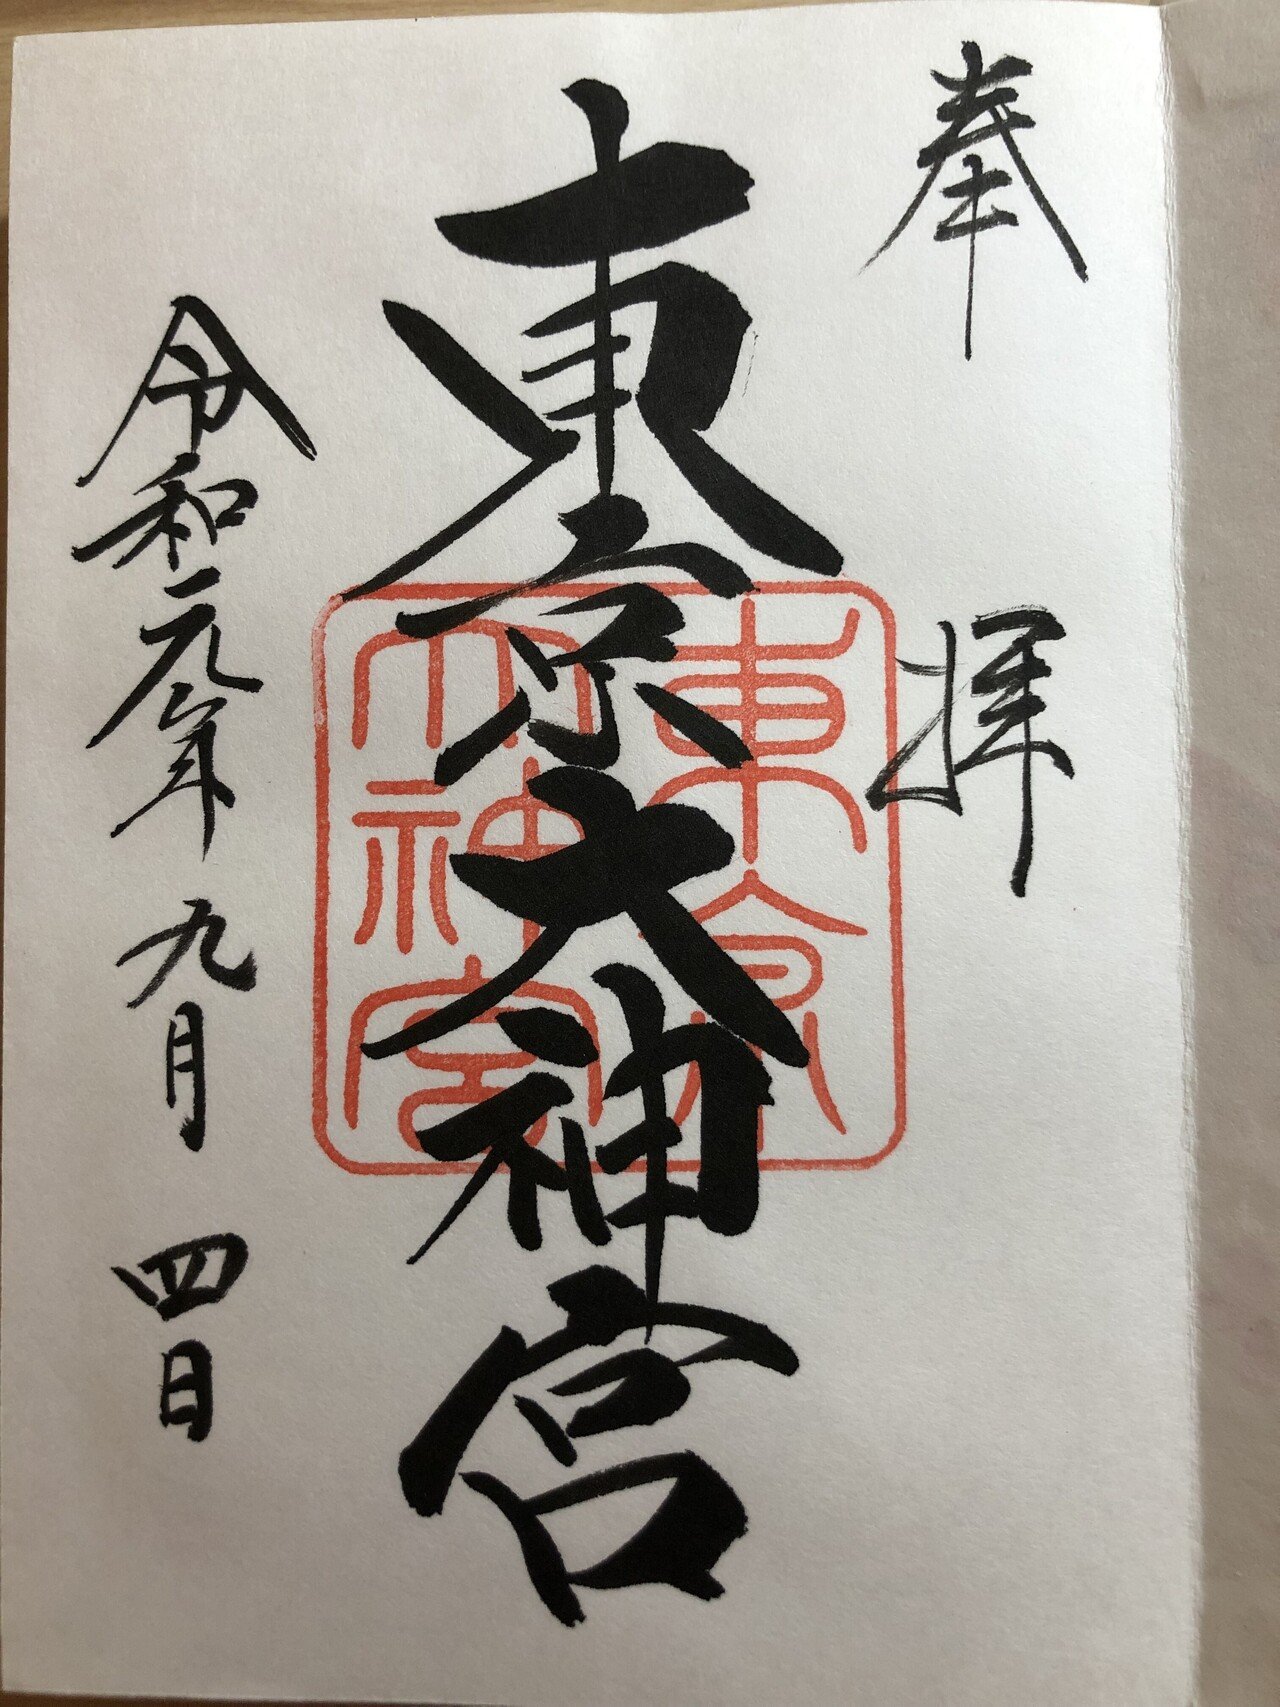 奉拝
東京大神宮
東京
大神宮
令和元年九月四日